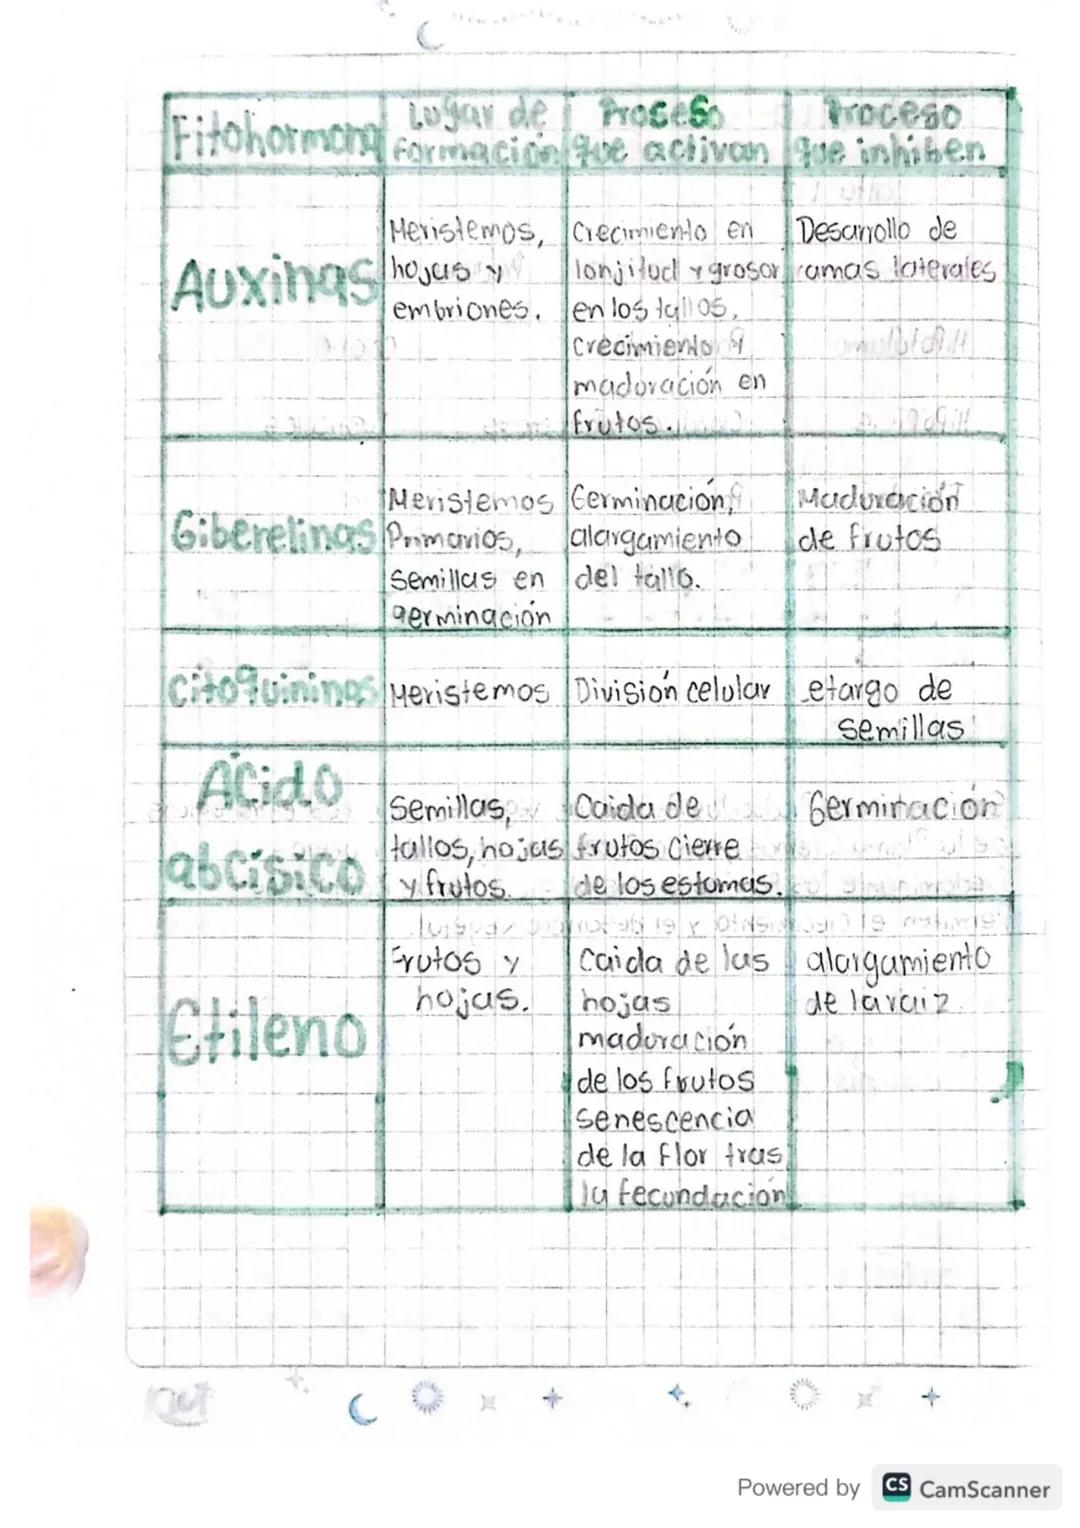 Fitohormona
Lugar de
formación
Proceso
que activan
Proceso
que inhiben
Auxinas
Meristemos,
hojas y
embriones.
Crecimiento en
lonjitud y grosor
en los tallos.
Crecimiento y
maduración en
frutos.
Desarrollo de
ramas laterales
Giberelinas
Meristemos
Primarios,
Semillas en
germinación
Germinación,
alargamiento
del tallo.
Maduración
de frutos
citoquininas
Meristemos
División celular
Letargo de
semillas
Ácido
abcísico
Semillas,
tallos, hojas
y frutos.
Caida de
frutos cierre
de los estomas.
Germinación
Etileno
Frutos y
hojas.
Caida de las
hojas
maduración
de los frutos
senescencia
de la flor tras
la fecundación
alargamiento
de la raiz.
Powered by CS CamScanner